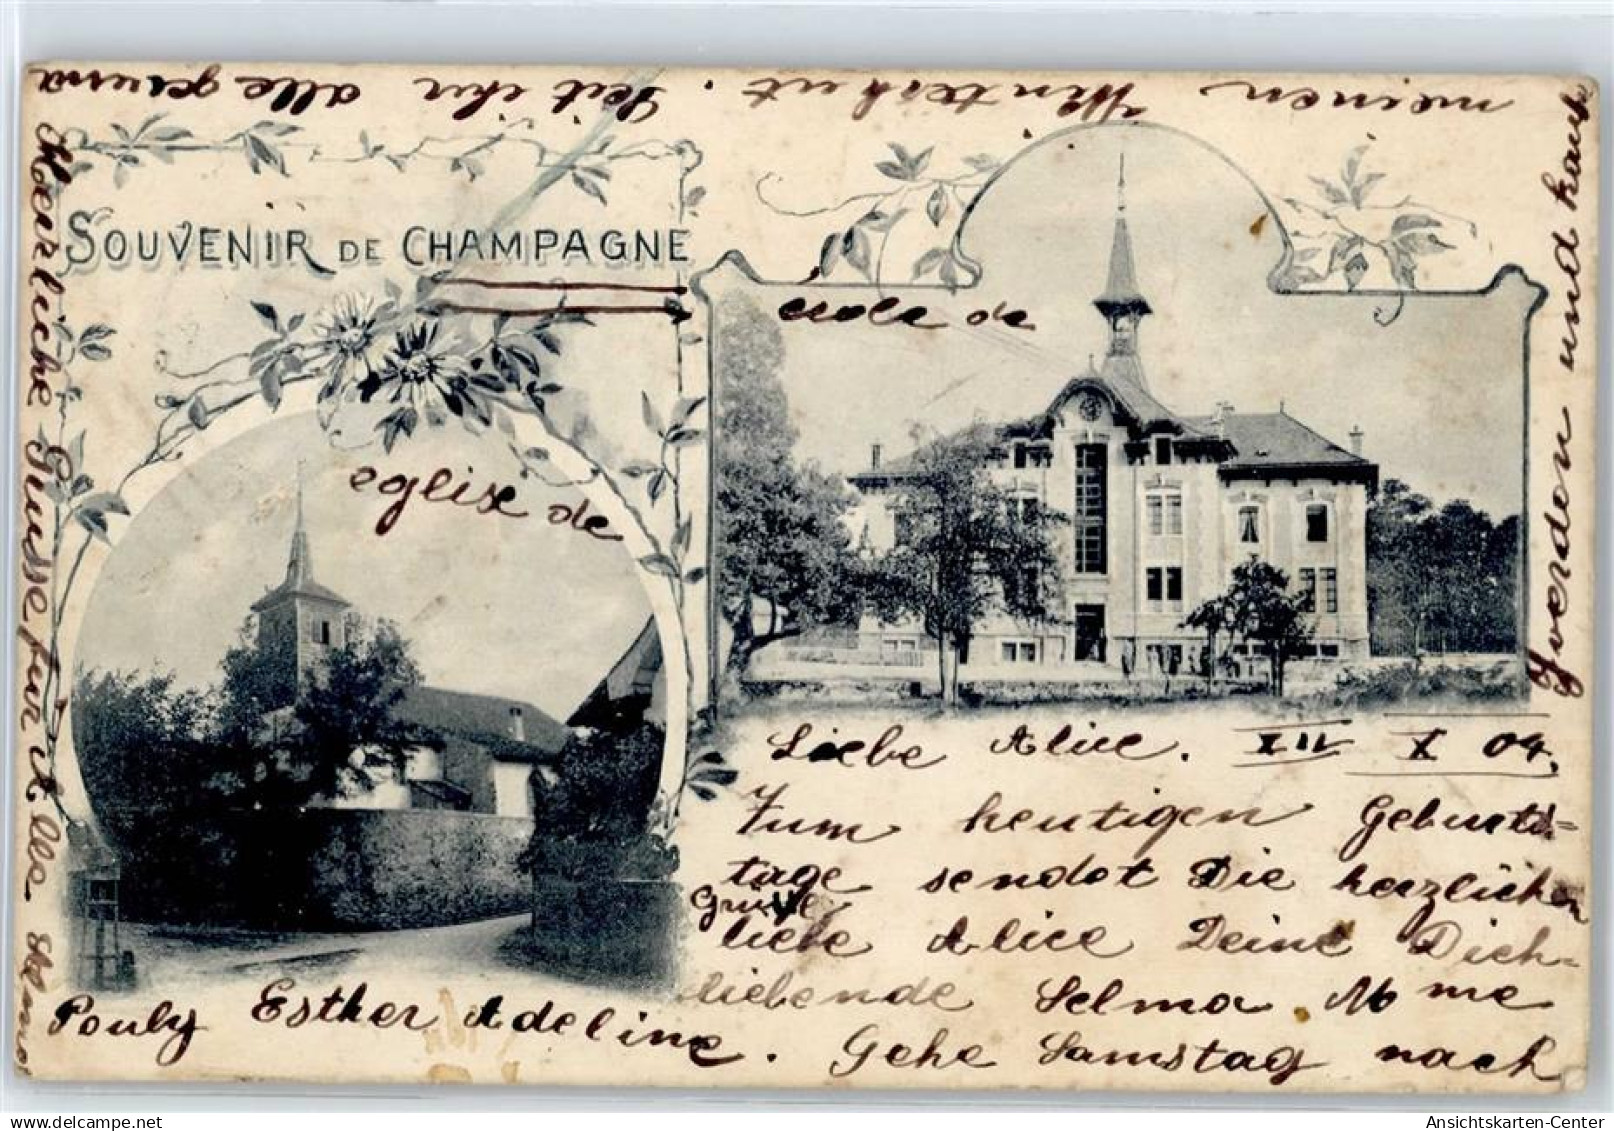 SOUVENIR DE CHAMPAGNE
ecole de
eglise de
Liebe Alice. XIII X 04.
Zum heutigen Geburts=
tage sendet Die herzlichen
Grüße
liebe Alice Deine Dich=
liebende Selma. Mme
Pouly Esther Adeline. Gehe Samstag nach
Yverdon und kaufe
meinen Winterhut. Seit ihr alle gesund
Herzliche Grüsse für alle. Selma
Ansichtskarten-Center